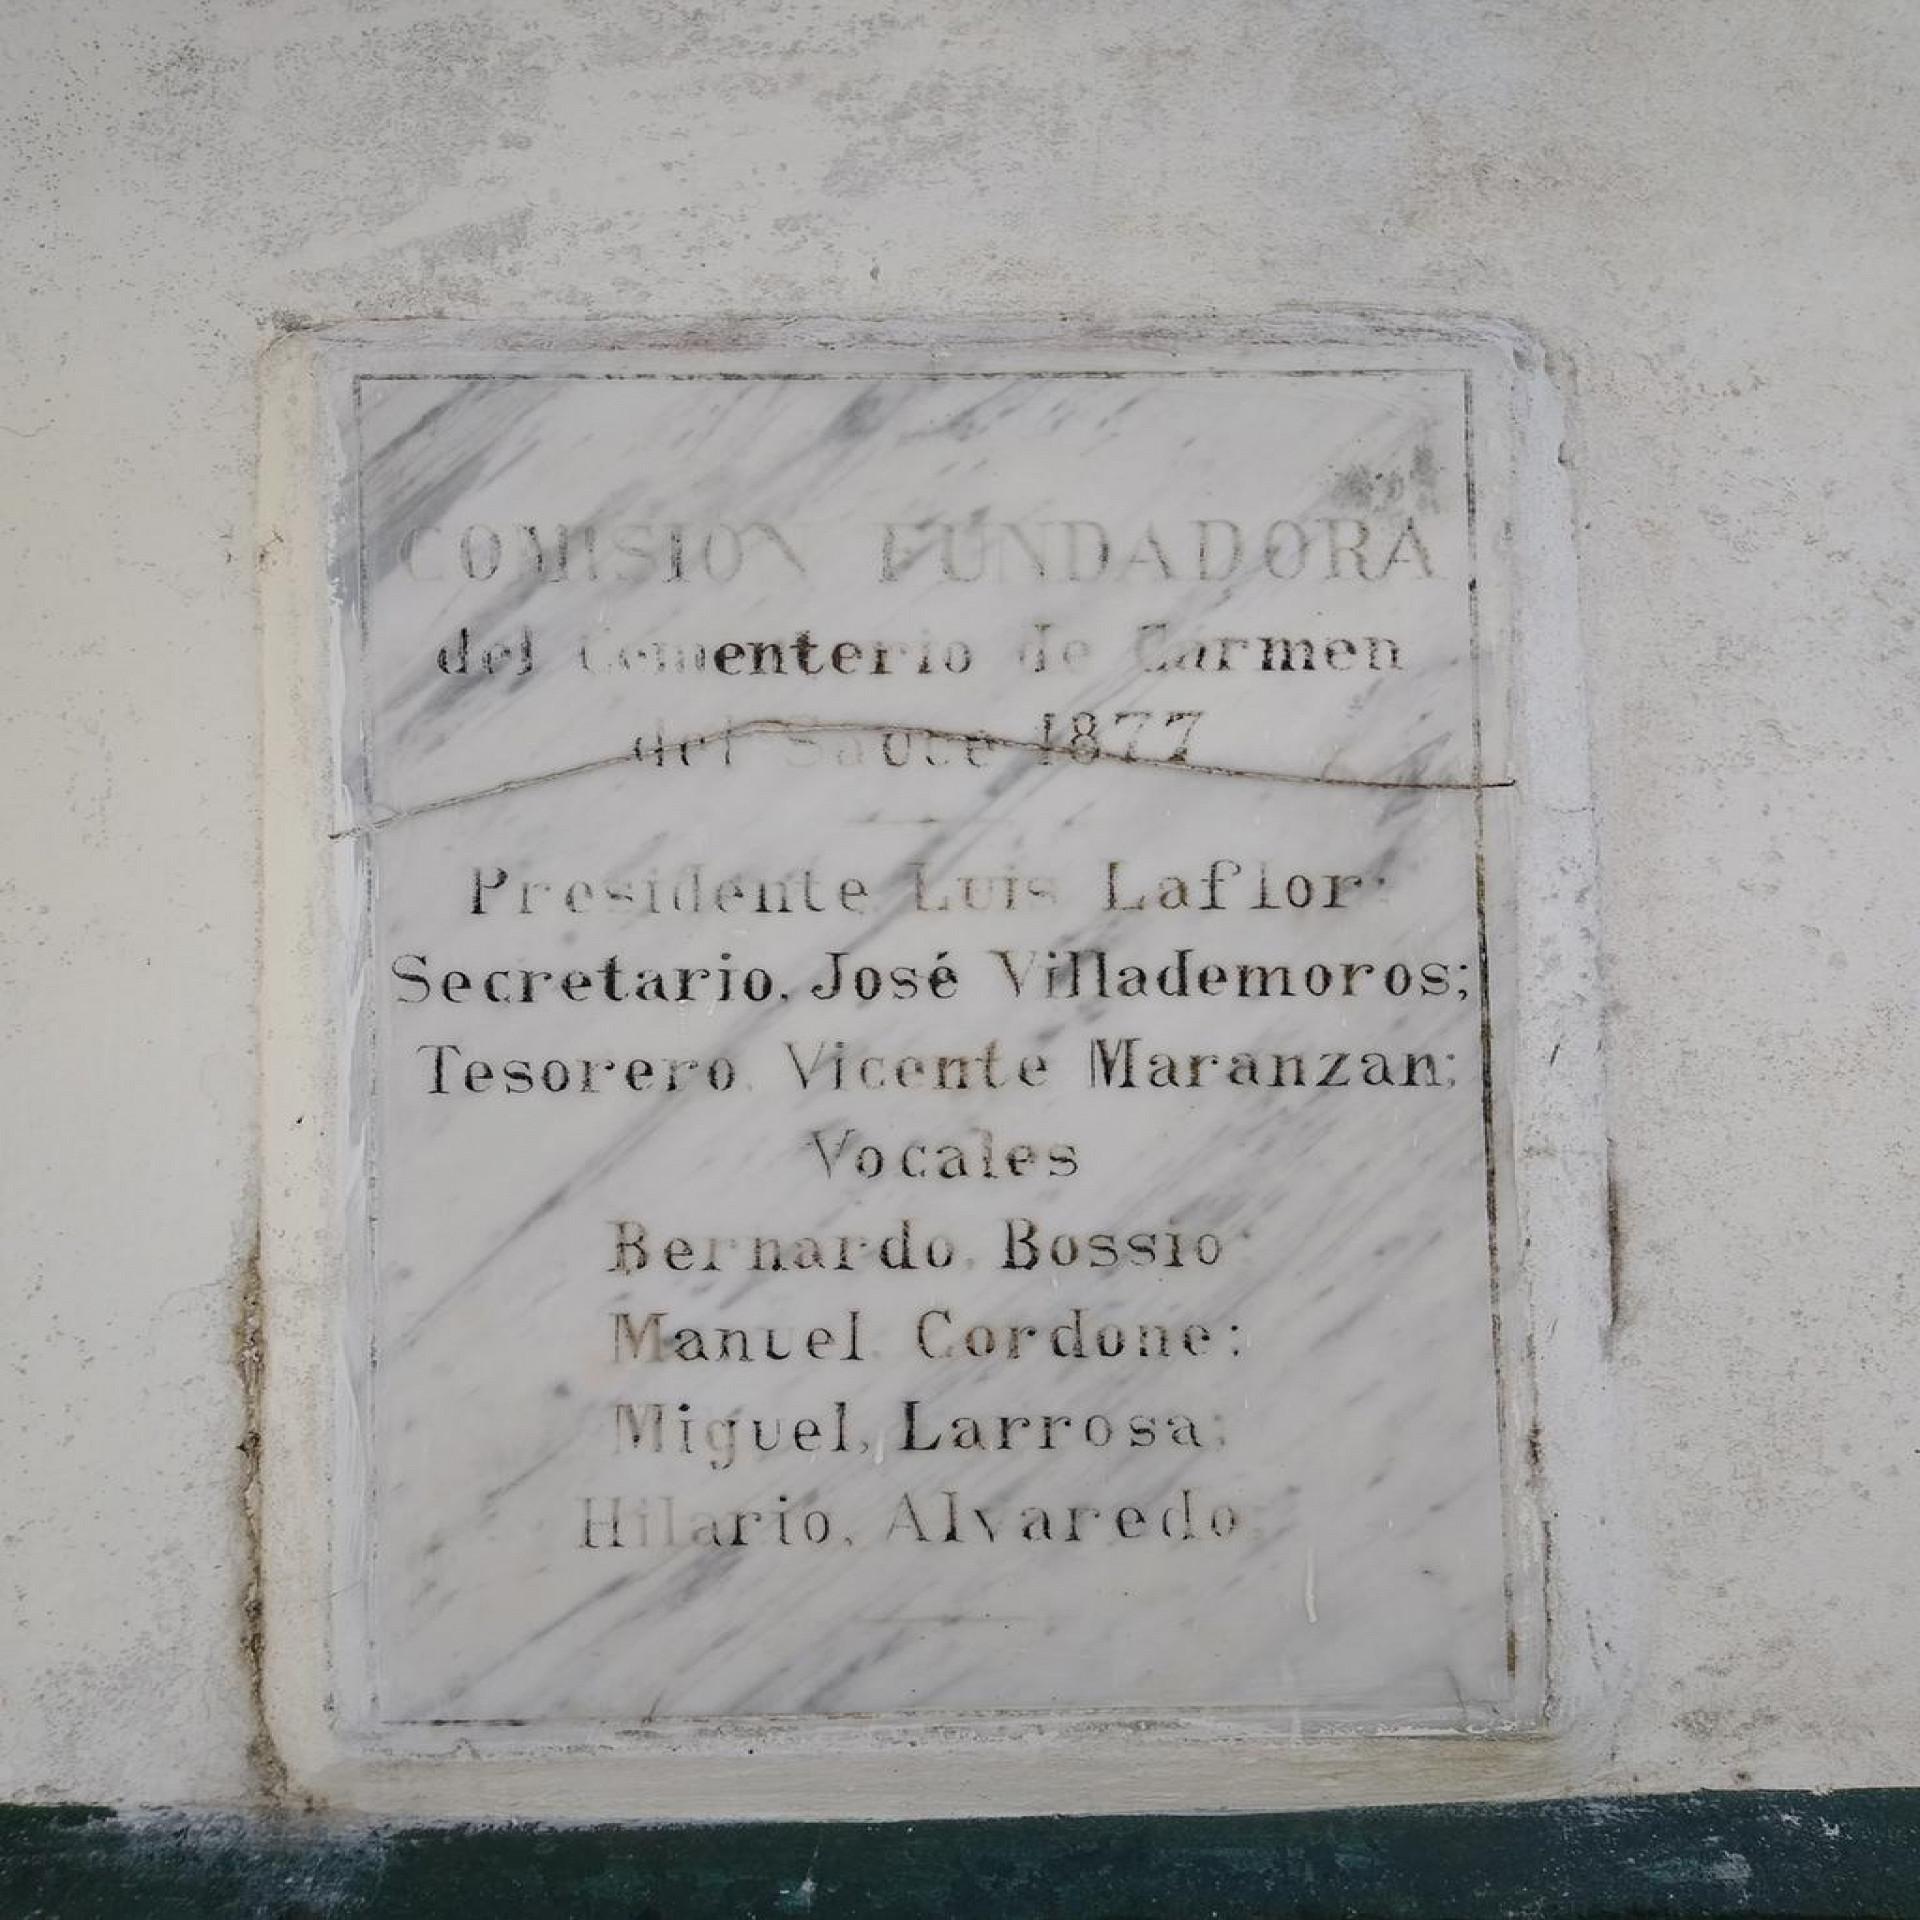 COMISION FUNDADORA
del Cementerio de Carmen
del Sauce 1877
Presidente Luis Laflor;
Secretario, José Villademoros;
Tesorero, Vicente Maranzan;
Vocales
Bernardo, Bossio;
Manuel, Cordone;
Miguel, Larrosa;
Hilario, Alvaredo.